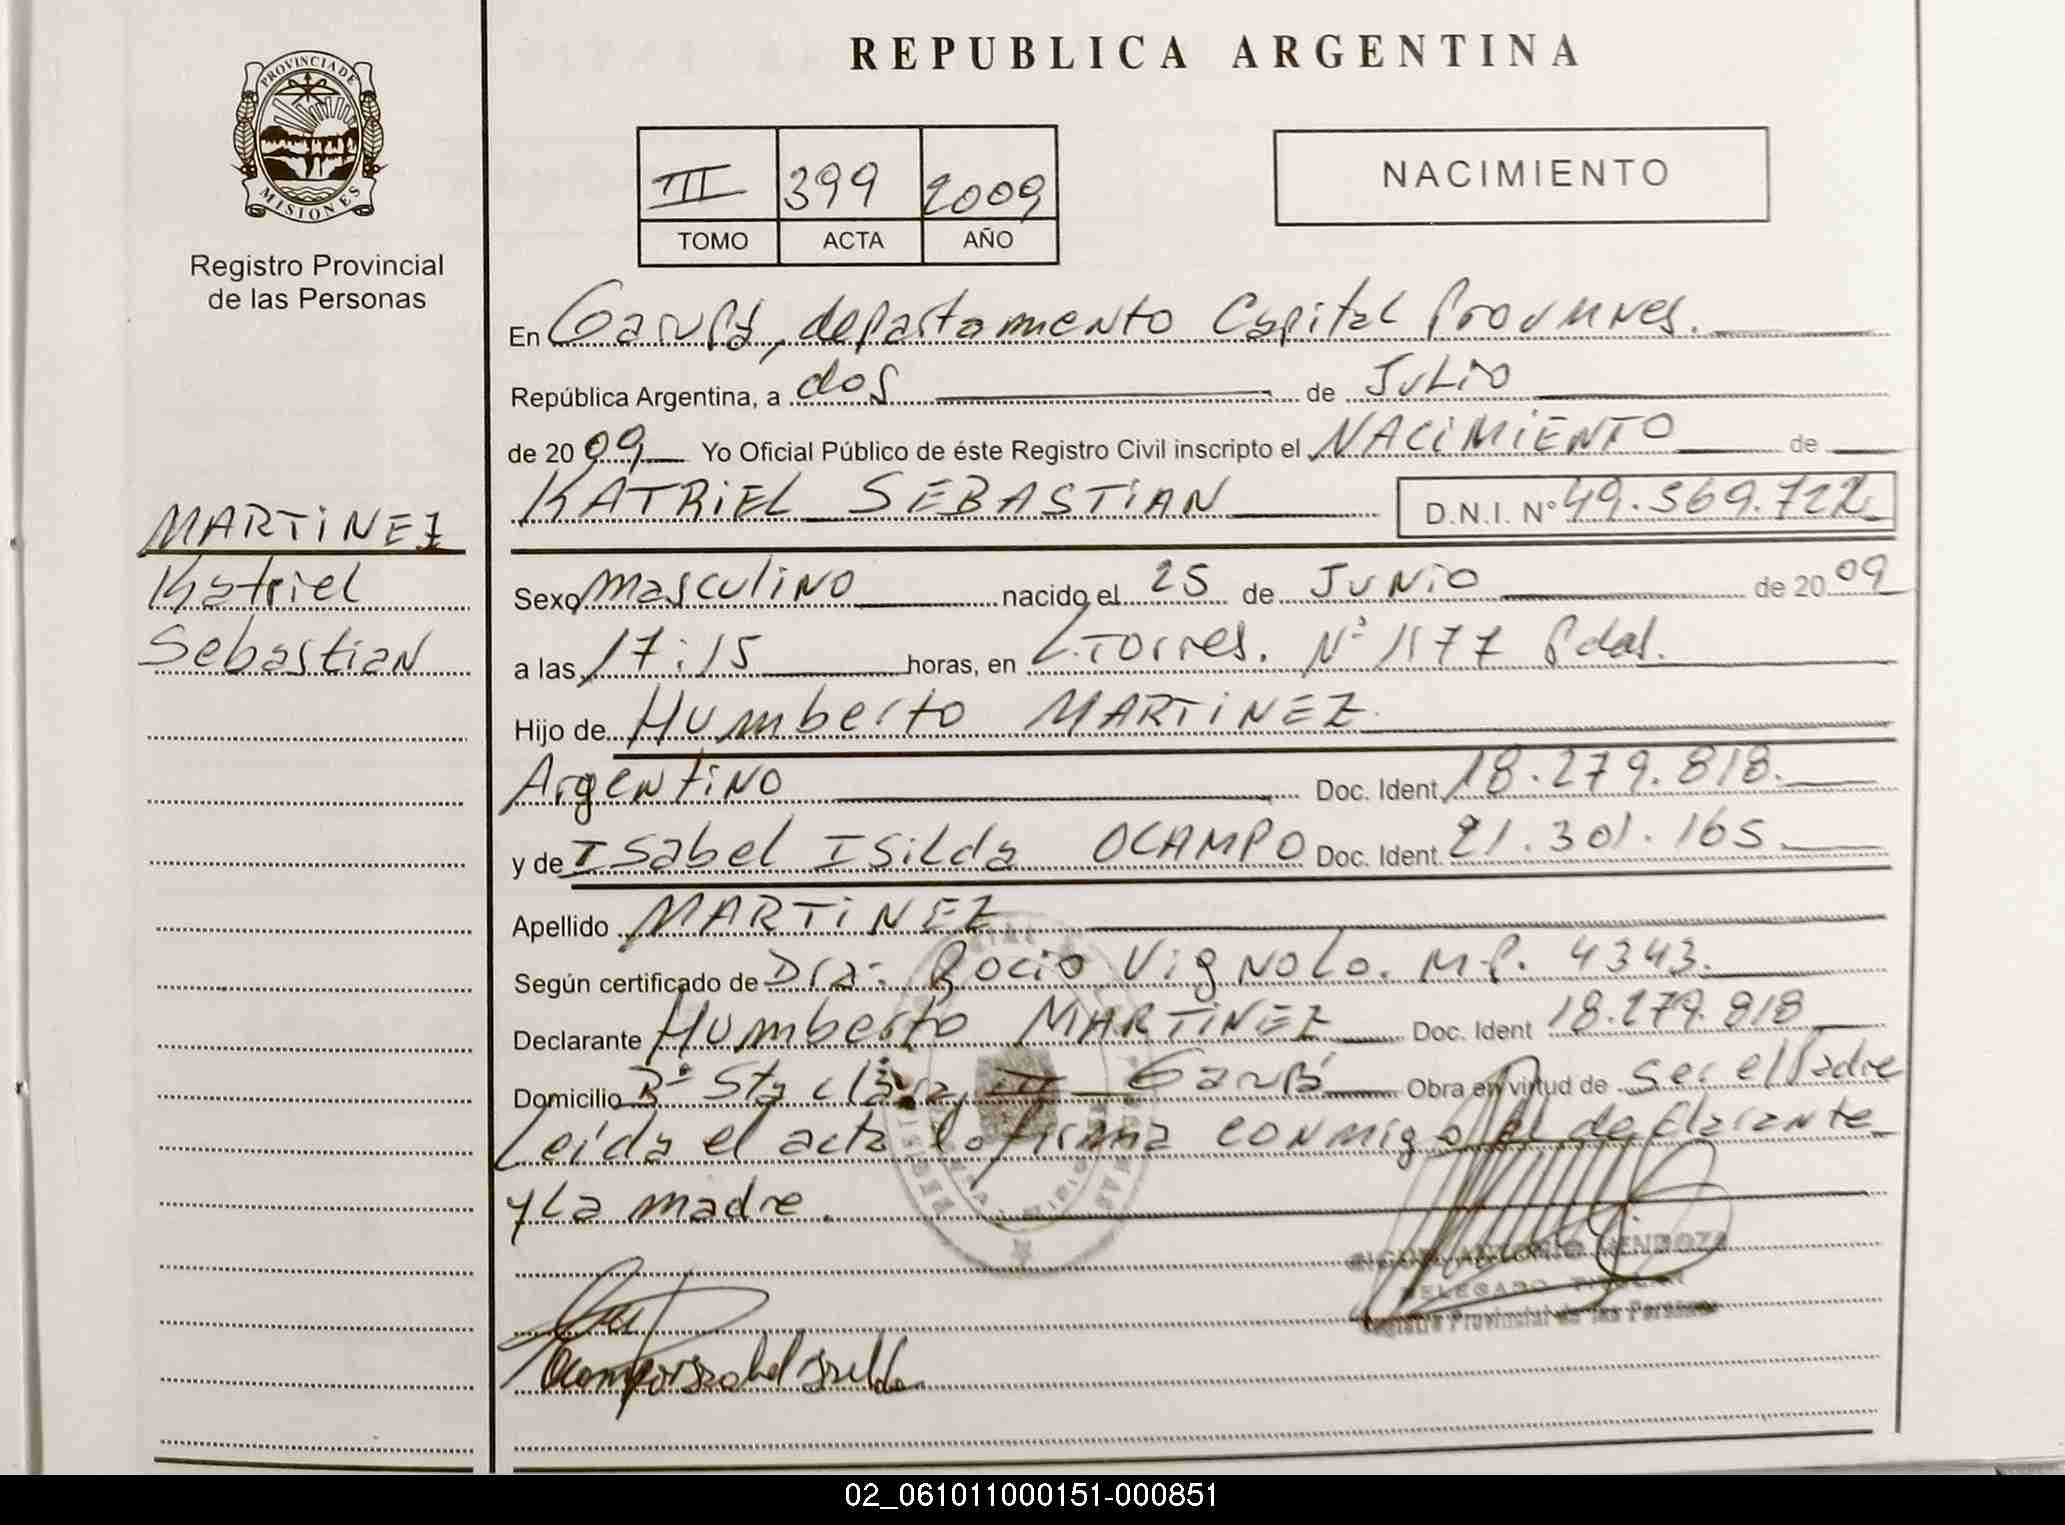 REPUBLICA ARGENTINA
PROVINCIA DE
MISIONES
Registro Provincial
de las Personas
III 399 2009
TOMO ACTA AÑO
NACIMIENTO
En Garupá, departamento Capital
República Argentina, a dos de Julio
de 2009 Yo Oficial Público de éste Registro Civil inscripto el NACIMIENTO de
KATRIEL SEBASTIAN D.N.I. Nº 49.569.722
MARTINEZ
Katriel
Sebastian
Sexo masculino nacido el 25 de JUNIO de 2009
a las 17:15 horas, en L.Torres. Nº 1177 Pdas.
Hijo de Humberto MARTINEZ
Argentino Doc. Ident. 18.279.818.
y de Isabel Isilda OCAMPO Doc. Ident. 21.301.165
Apellido MARTINEZ
Según certificado de Dra: Rocio Vignolo. M.P. 4343.
Declarante Humberto MARTINEZ Doc. Ident 18.279.818
Domicilio Bº Sta clara, III Garupá Obra en virtud de Ser el Padre
Leida el acta lo firma conmigo el declarante
y La madre.
ANTONIO MENDOZA
DELEGADO TITULAR
Registro Provincial de las Personas
Ocampo Isabel Isilda
02_061011000151-000851